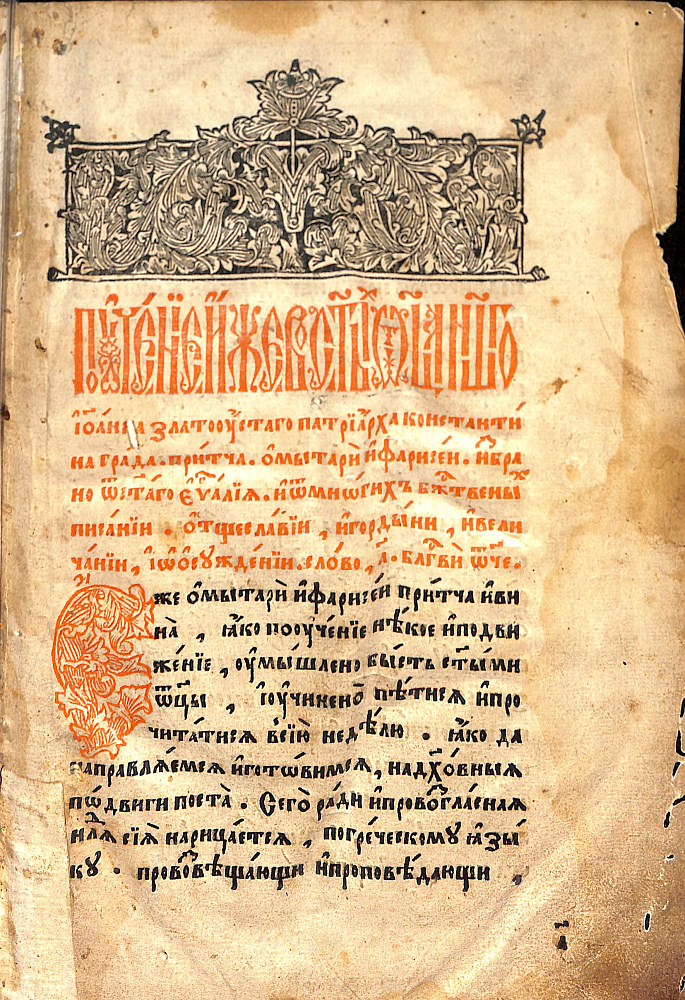 Поꙋче́нїе и҆́же во ст҃ы́хъ ѻ҆тца̀ на́шегѡ
і҆ѡа́нна златоꙋ́стаго патрїа́рха константи́
на гра́да. при́тча. ѡ҆ мытарѝ и҆ фарисе́и. и҆ збра
но ѿ ст҃а́го є҆ѵⷢ҇а́лїѧ. и҆ ѿ мнѡ́гихъ бжⷭ҇твены́хъ
писа́нїи. ѡ҆ тщесла́вїи, и҆ горды́ни, и҆ вели
ча́нїи, і҆ ѡ҆ ѡ҆сꙋжде́нїи. сло́во, а҃. блгⷭ҇вѝ ѿч҃е.
Е҆́же ѡ҆ мытарѝ и҆ фарисе́и при́тча и҆ ви
на̀, ꙗ҆́ко поѹче́нїе нѣ́кое и҆ подви
же́нїе, ѹ҆мы́шлено бы́сть ст҃ы́ми
ѿц҃ы̀, і҆ ѹ҆чинено̀ пѣ́тисѧ и҆ про
чита́тисѧ в̾ сїю̀ недѣ́лю. ꙗ҆́ко да
направлѧ́емсѧ и҆ гото́вимсѧ, на дꙋхѡ́вныѧ
по́двиги поста̀. Сего̀ ра́ди и҆ провозгла́сная
нлⷣѧ сїѧ̀ нарица́етсѧ, по гре́ческомꙋ ꙗ҆зы́
кꙋ. провозвѣща́ющи и҆ проповѣ́дающи,
а҃